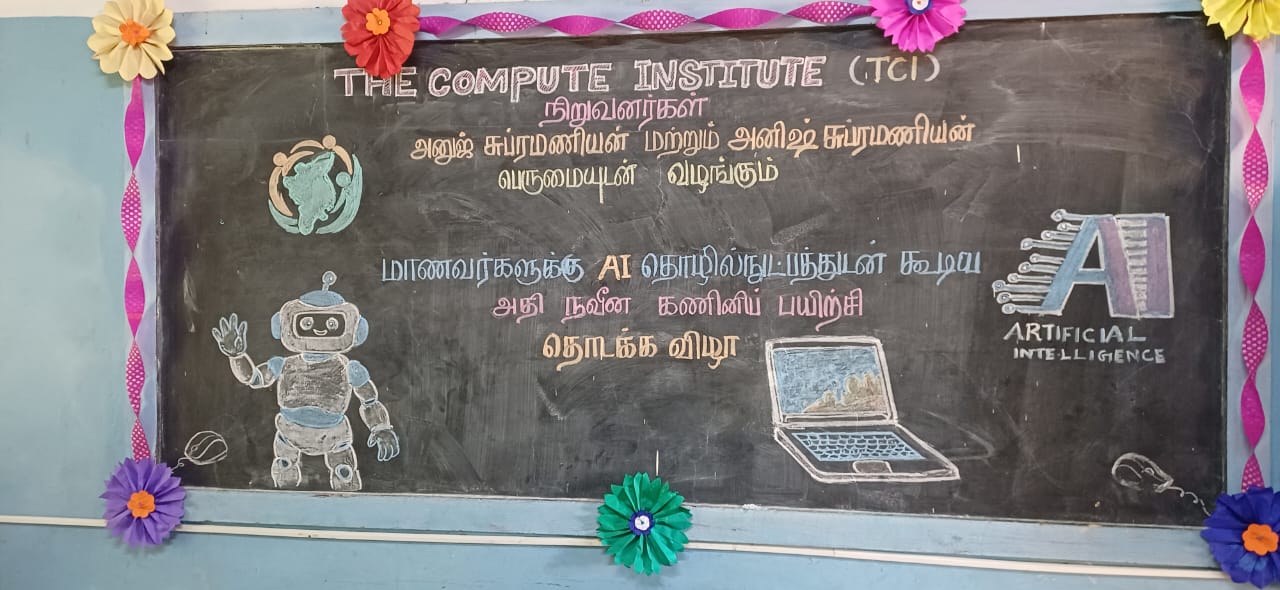 THE COMPUTE INSTITUTE (TCI)
நிறுவனர்கள்
அனுஜ் சுப்ரமணியன் மற்றும் அனிஷ் சுப்ரமணியன்
பெருமையுடன் வழங்கும்
மாணவர்களுக்கு AI தொழில்நுட்பத்துடன் கூடிய
அதி நவீன கணினிப் பயிற்சி
தொடக்க விழா
AI
ARTIFICIAL
INTELLIGENCE